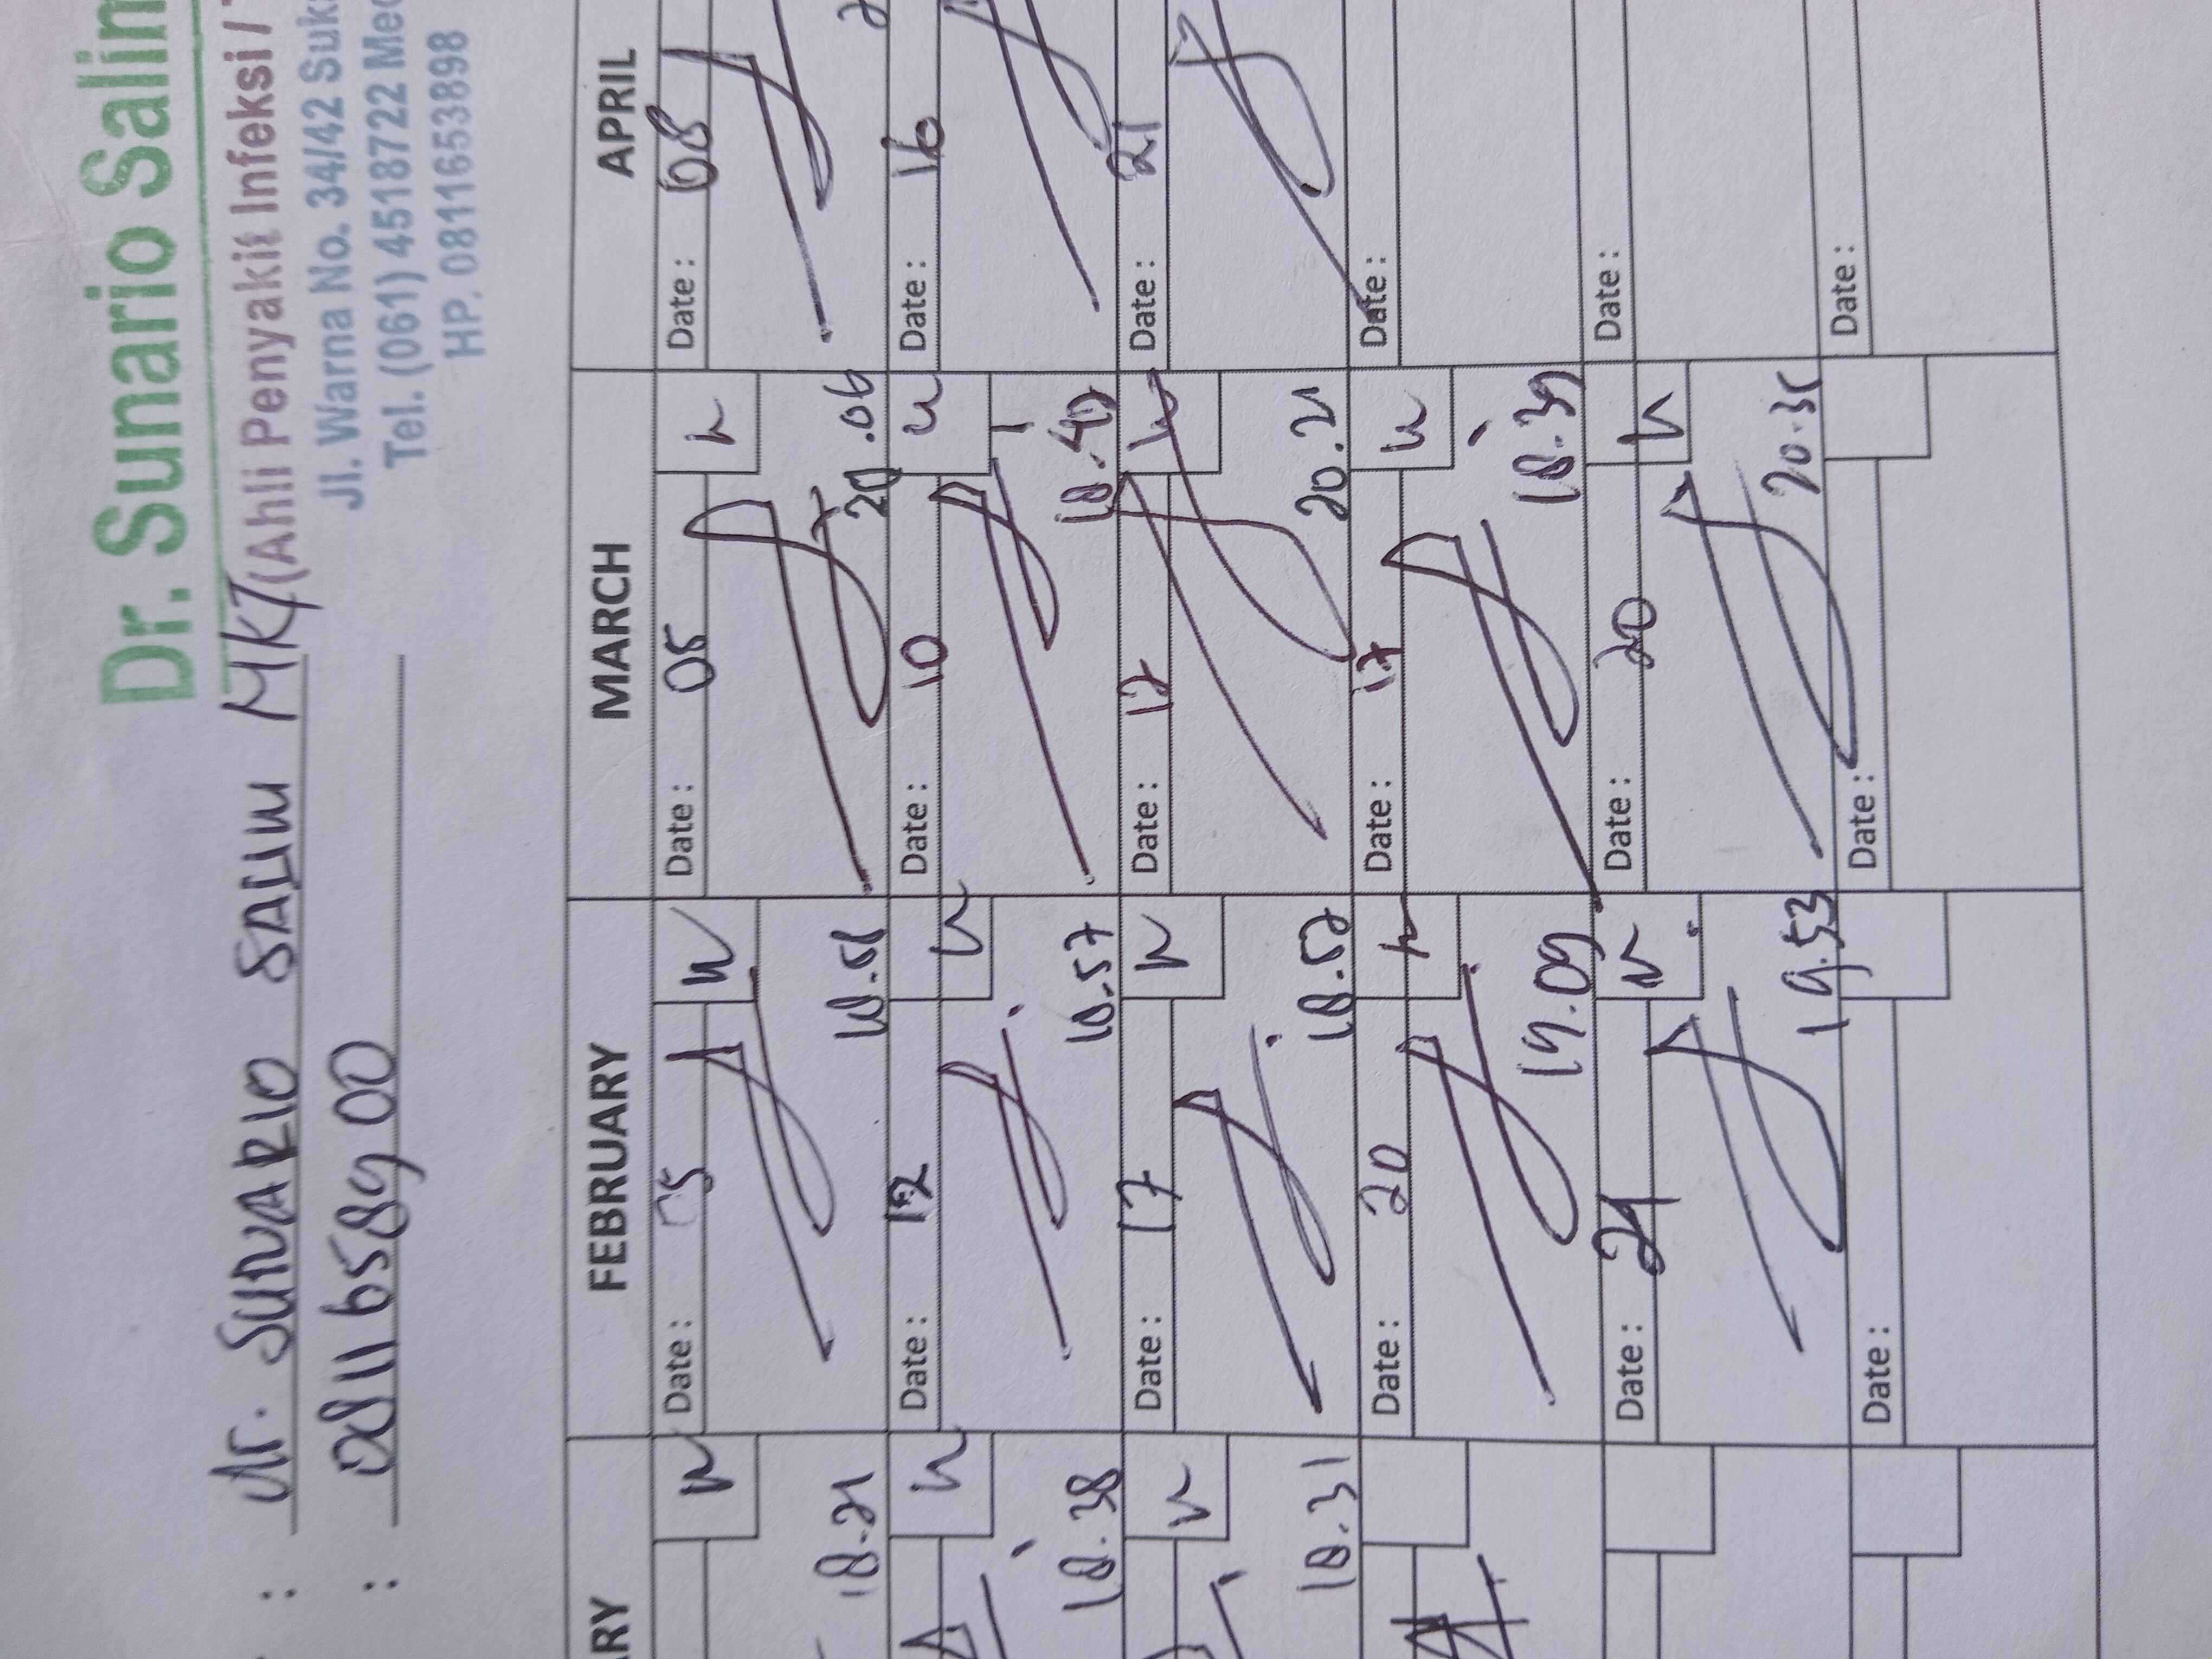 Dr. Sunario Salim
: dr. SUNARIO SALIM MKT (Ahli Penyakit Infeksi /
Jl. Warna No. 34/42 Suk
Tel. (061) 4518722 Med
HP. 0811653898
: 0811658900
ARY FEBRUARY MARCH APRIL
Date : 05 Date : 05 Date : 08
18.21 18.51 20.06
Date : 12 Date : 10 Date : 16
18.38 18.57 18.40
Date : 17 Date : 12 Date : 21
18.31 18.52 20.21
Date : 20 Date : 17 Date :
19.09 18.39
Date : 24 Date : 20 Date :
19.53 20.35
Date : Date : Date :